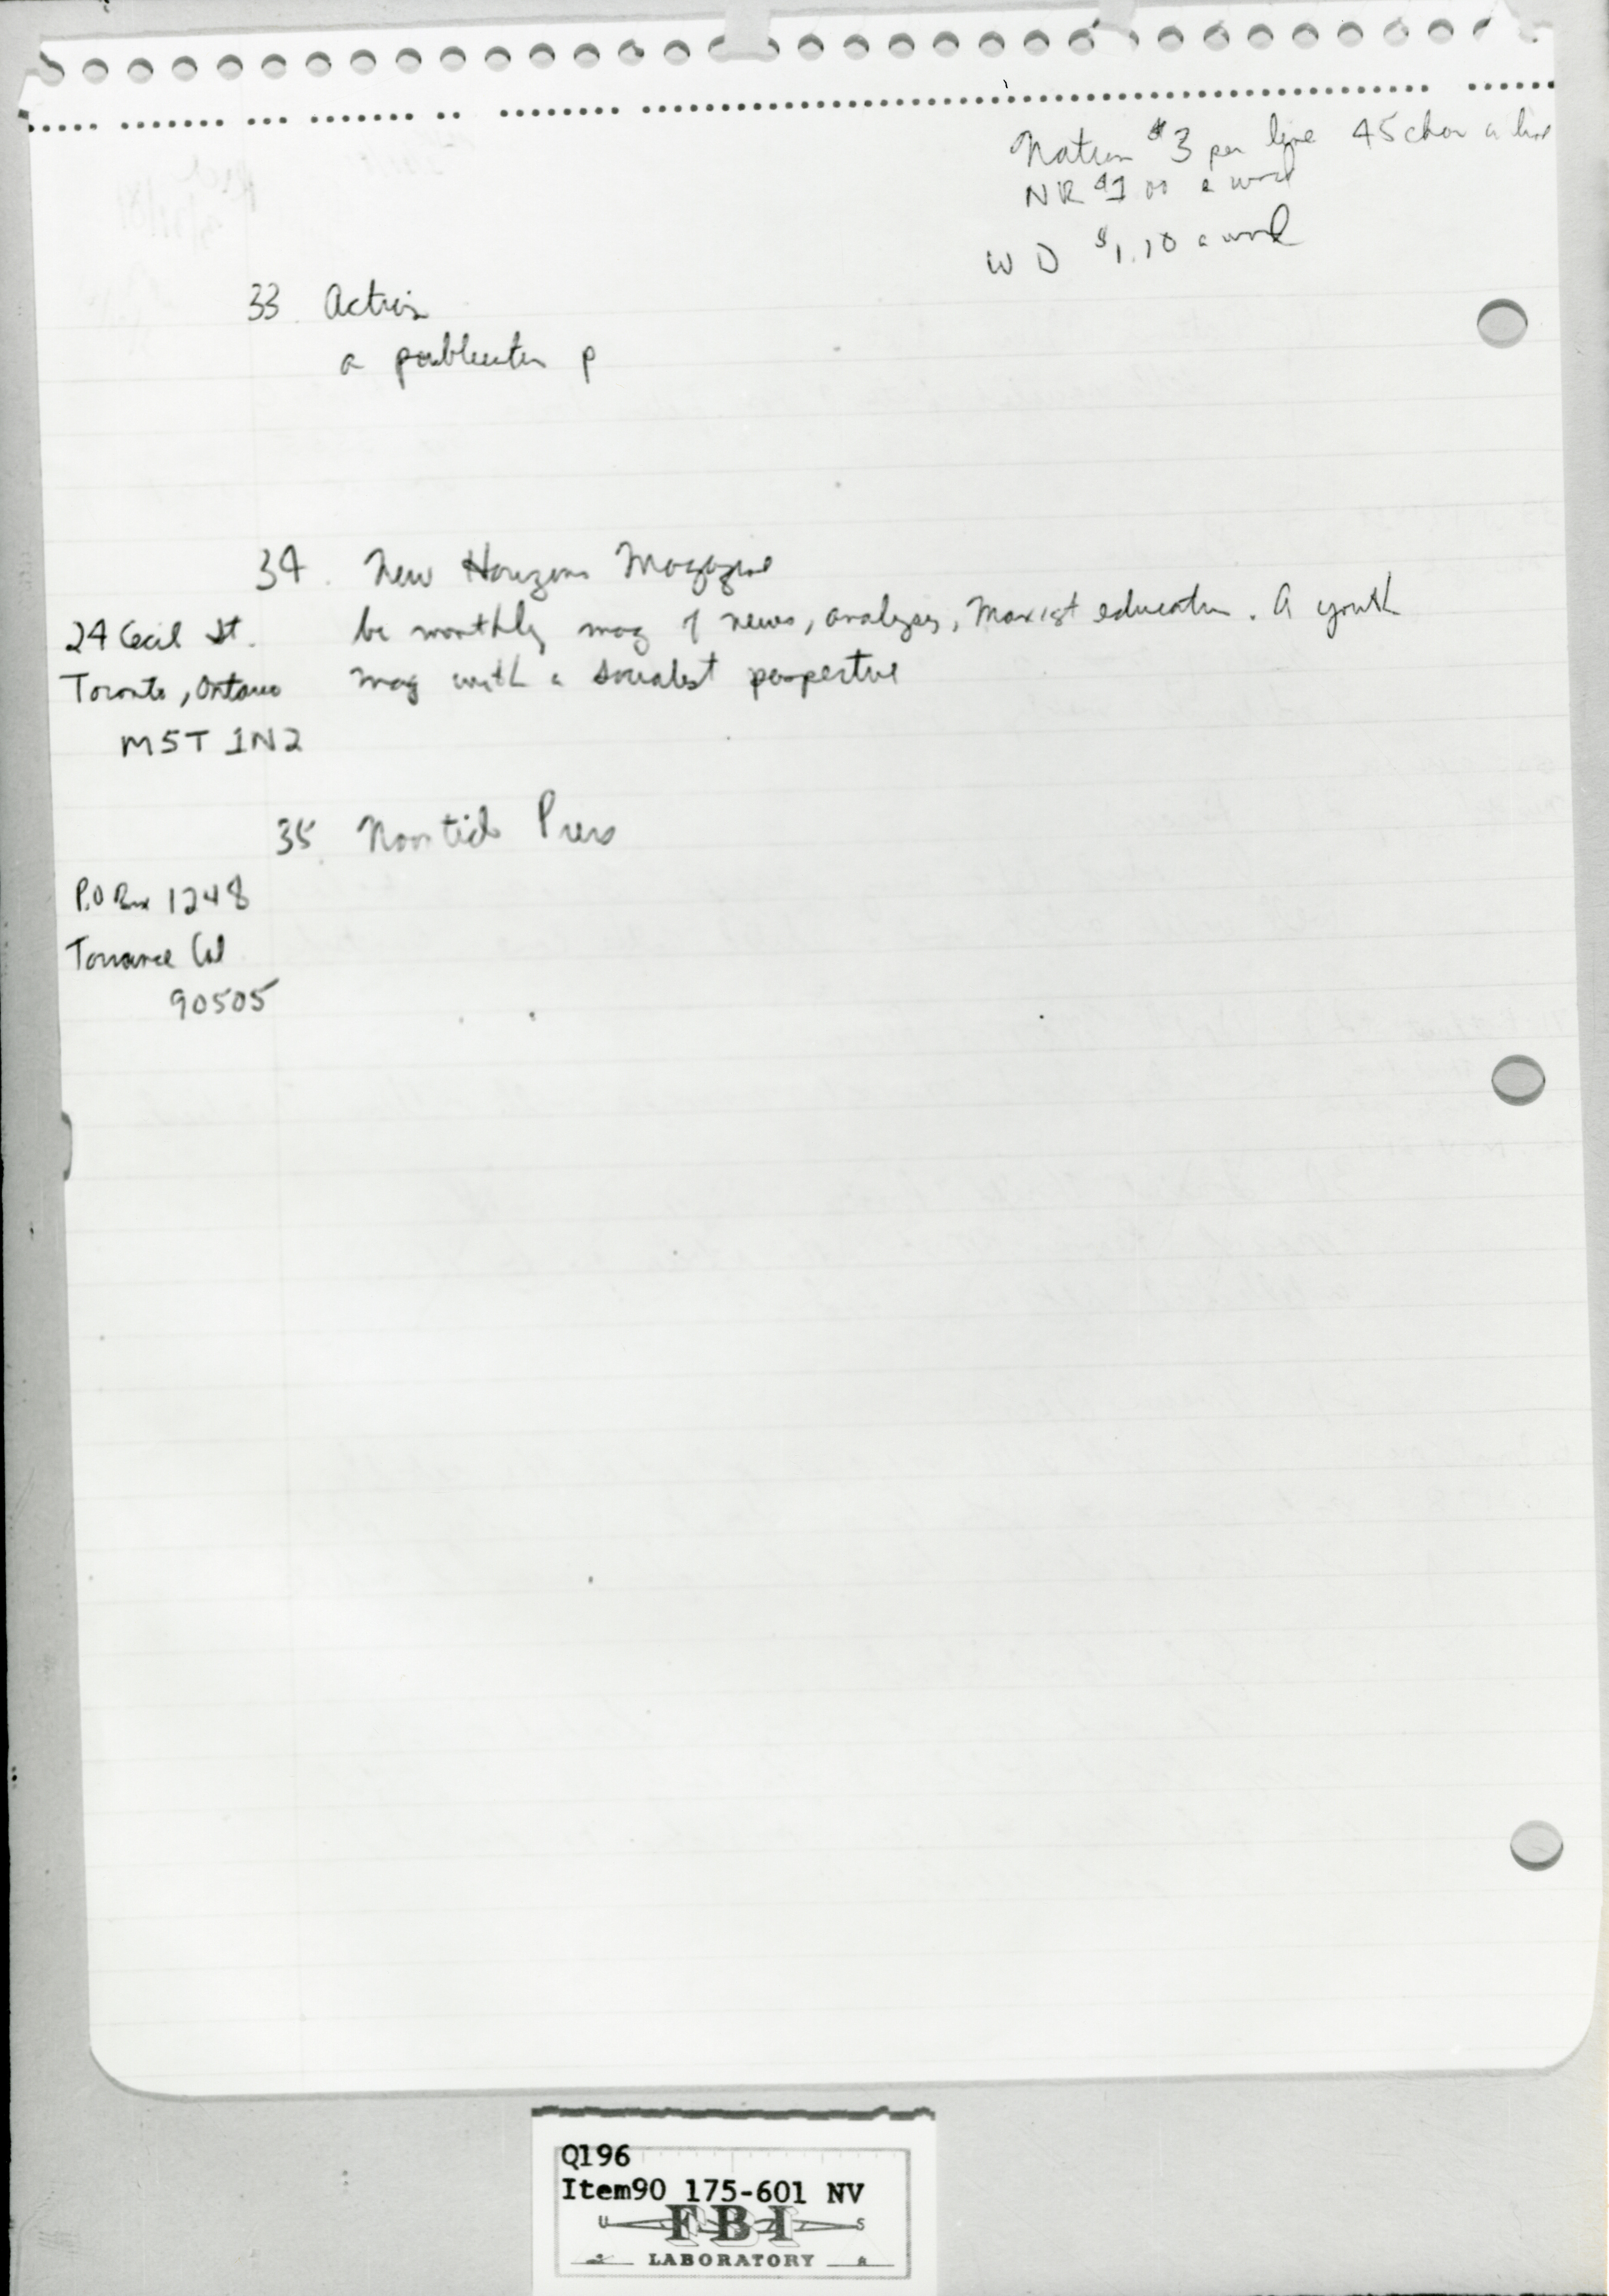 Nation $3 per line 45 char a line
NR $1 00 a word
W D $1.10 a word
33. Action
a publication p
34. New Horizons Magazine
24 Cecil St. bi monthly mag of news, analyses, Marxist education. A youth
Toronto, Ontario mag with a socialist perspective
M5T 1N2
35. Noontide Press
P.O Box 1248
Torrance Cal
90505
Q196
Item90 175-601 NV
U FBI S
LABORATORY A